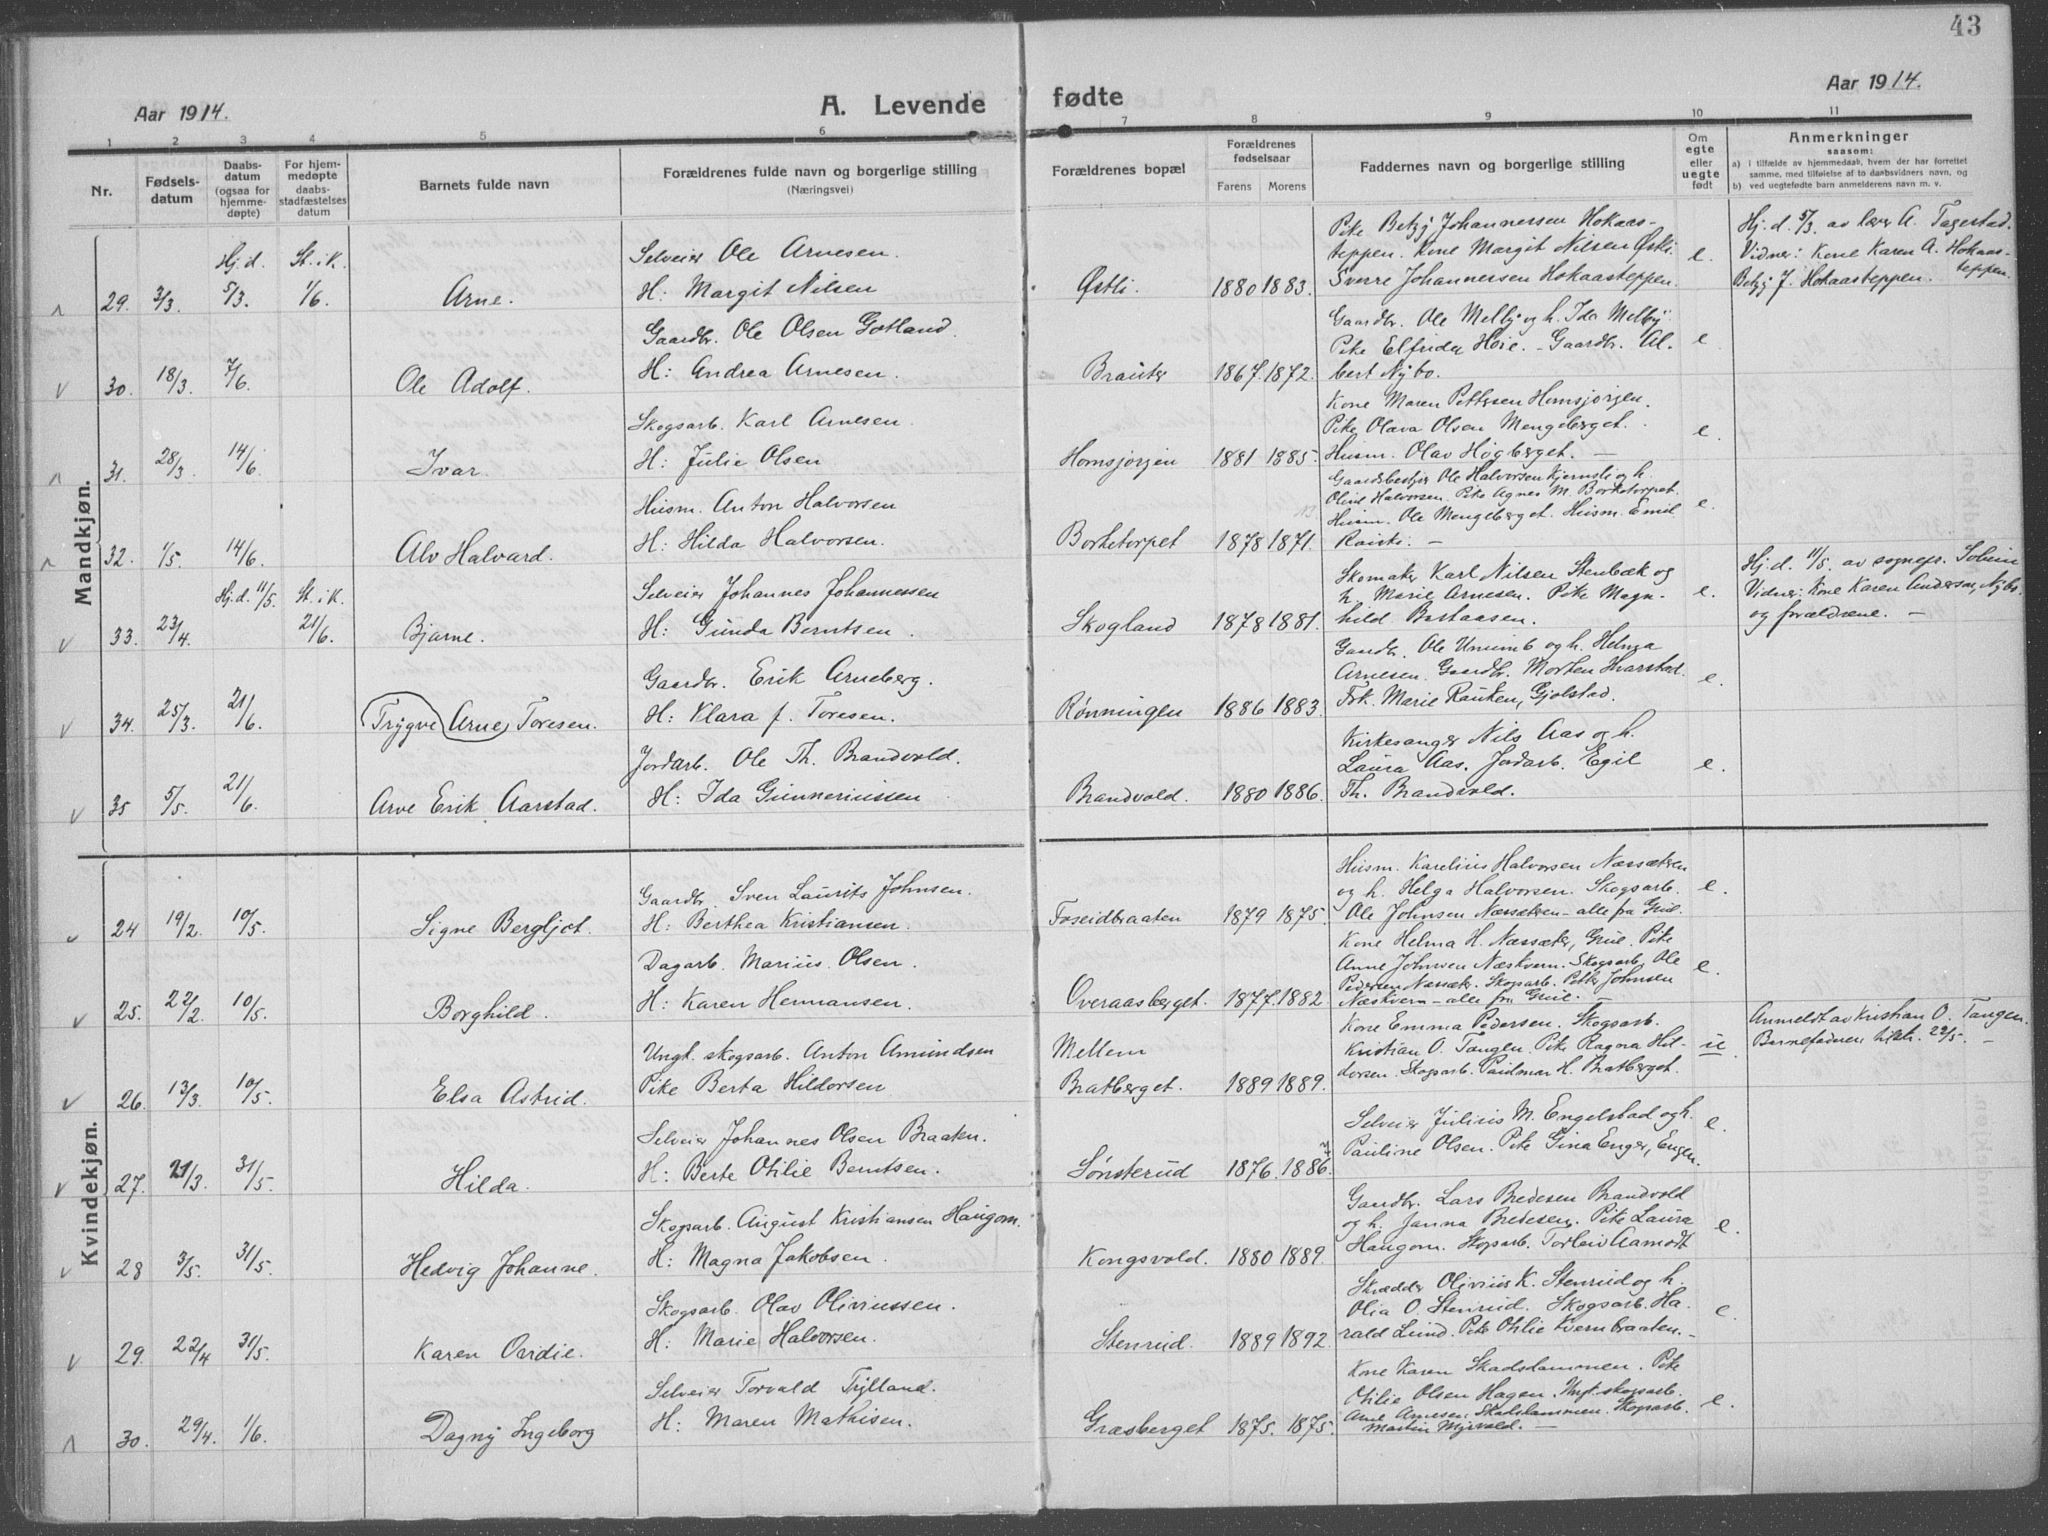 43
Aar 1914.
A. Levende fødte
Aar 1914.
1 2 3 4 5 6 7 8 9 10 11
Nr.
Fødsels-
datum
Daabs-
datum
(ogsaa for
hjemme-
døpte)
For hjem-
medøpte
daabs-
stadfæstelses
datum
Barnets fulde navn
Forældrenes fulde navn og borgerlige stilling
(Næringsvei)
Forældrenes bopæl
Forældrenes
fødselsaar
Farens Morens
Faddernes navn og borgerlige stilling
Om
egte
eller
uegte
født
Anmerkninger
saasom:
a) i tilfælde av hjemmedaab, hvem der har forrettet
samme, med tilføielse af to daabsvidners navn, og
b) ved uegtefødte barn anmelderens navn m. v.
Mandkjøn.
29. 3/3. Hj.d. 5/3. St. i K. 1/6. Arne.
Selveier Ole Arnesen.
H: Margit Nilsen
Østli. 1880 1883.
Pike Betzy Johannessen Hokaas-
teppen. Kone Margit Nilsen Østli.
Sverre Johannersen Hokaasteppen.
e.
Hj. d. 5/3. av lærer A. Tagestad.
Vidner: Kone Karen A. Hokaas-
teppen
Betzy J. Hokaasteppen.
30. 18/3. 7/6. Ole Adolf.
Gaardbr. Ole Olsen Gotland.
H: Andrea Arnesen.
Brauter 1867. 1872.
Gaardbr. Ole Melby og h. Ida Melby.
Pike Elfrida Hoie. - Gaardbr. Al-
bert Nybo.
e.
31. 28/3. 14/6. Ivar.
Skogsarb. Karl Arnesen.
H: Julie Olsen
Homsjorjen 1881 1885.
Kone Maren Pettersen Homsjorjen.
Pike Olava Olsen Mengeberget.
Husm. Olav Hogberget. —
e.
32. 1/5. 14/6. Alv Halvard.
Husm. Anton Halvorsen
H: Hilda Halvorsen.
Borketorpet 1878 1871.
Gaardsbestyr. Ole Halvorsen Kjernsli og h.
Oline Halvorsen. Pike Agnes M. Borketorpet.
Husm. Ole Mengeberget. Husm. Emil
—
e.
33. 23/4. Hj.d. 11/5. St. i K. 21/6. Bjarne.
Selveier Johannes Johannessen
H: Gunda Berntsen.
Skogland 1878 1881.
Skomaker Karl Nilsen Stenbæk og
h. Marie Arnesen. Pike Magn-
hild Bastaasen.
e.
Hj. d. 11/5. av sognepr.
Vidner: Kone Karen Andersen, Nybo.
og forældrene. —
34. 25/3. 21/6. Trygve Arne Toresen.
Gaardbr. Erik Arneberg.
H: Klara f. Toresen.
Rønningen 1886 1883.
Gaardbr. Ole Unumb og h. Helma
Arnesen. Gaardbr. Morten Hvarstad.
Frk. Marie Rauken, Gjolstad.
e.
35 5/5. 21/6. Arve Erik Aarstad.
Jordarb. Ole Th. Brandvold.
H: Ida Gunneriussen
Brandvold. 1880 1886.
Kirkesanger Nils Aas og h.
Laura Aas. Jordarb. Egil
Th. Brandvold.
e.
Kvindekjøn.
24 19/2. 10/5. Signe Bergljot.
Gaardbr. Sven Laurits Johnsen.
H: Berthea Kristiansen.
Foseidbraaten 1879 1875.
Husm. Karelius Halvorsen Næssætren
og h. Helga Halvorsen. Skogsarb.
Ole Johnsen Næssætren - alle fra Grue.
e.
25. 22/2. 10/5. Borghild.
Dagarb. Marius Olsen.
H: Karen Hermansen.
Overaasberget. 1877. 1882.
Kone Helma H. Næssæter, Grue. Pike
Anne Johnsen Næskvern. Skogsarb. Ole
Pedersen Næssæter. Skogsarb. Petter Johnsen
Næskvern - alle fra Grue. —
e.
26. 13/3. 10/5. Elsa Astrid.
Ungk. skogsarb. Anton Amundsen
Pike Berta Hildorsen
Mellem
Bratberget. 1889 1889.
Kone Emma Pedersen. Skogsarb.
Kristian O. Tangen. Pike Ragna Hil-
dorsen. Skogsarb. Paidmar H. Bratberget.
u
Anmeldt av Kristian O. Tangen.
Barnefaderen tilstr. 29/5. —
27. 21/3. 31/5. Hilda.
Selveier Johannes Olsen Braaten.
H: Berte Otilie Berntsen.
Sønsterud 1876. 1886.
Selveier Julius M. Engelstad og h.
Pauline Olsen. Pike Gina Enger, Enger.
e.
28 3/5. 31/5. Hedvig Johanne.
Skogsarb. August Kristiansen Haugom.
H: Magna Jakobsen.
Kongsvold. 1880 1889.
Gaardbr. Lars Bredesen Brandvold
og h. Janna Bredesen. Pike Laura
Haugom. Skogsarb. Torleiv Aamodt
e.
29. 22/4 31/5. Karen Ovidie.
Skogsarb. Olav Oliviussen.
H: Marie Halvorsen.
Stenrud. 1889 1892.
Skrædder Olivius K. Stenrud og h.
Olia O. Stenrud. Skogsarb. Ha-
rald Lund. Pike Otilie Kvernbraaten. -
e.
30. 29/4. 1/6. Dagny Ingeborg
Selveier Torvald Tylland.
H: Maren Mathisen.
Græsberget 1875. 1875.
Kone Karen Skadsdammen. Pike
Otilie Olsen Hagen. Ungk. skogsarb.
Arne Arnesen Skadsdammen. Skogsarb.
Martin Myrvold. —
e.